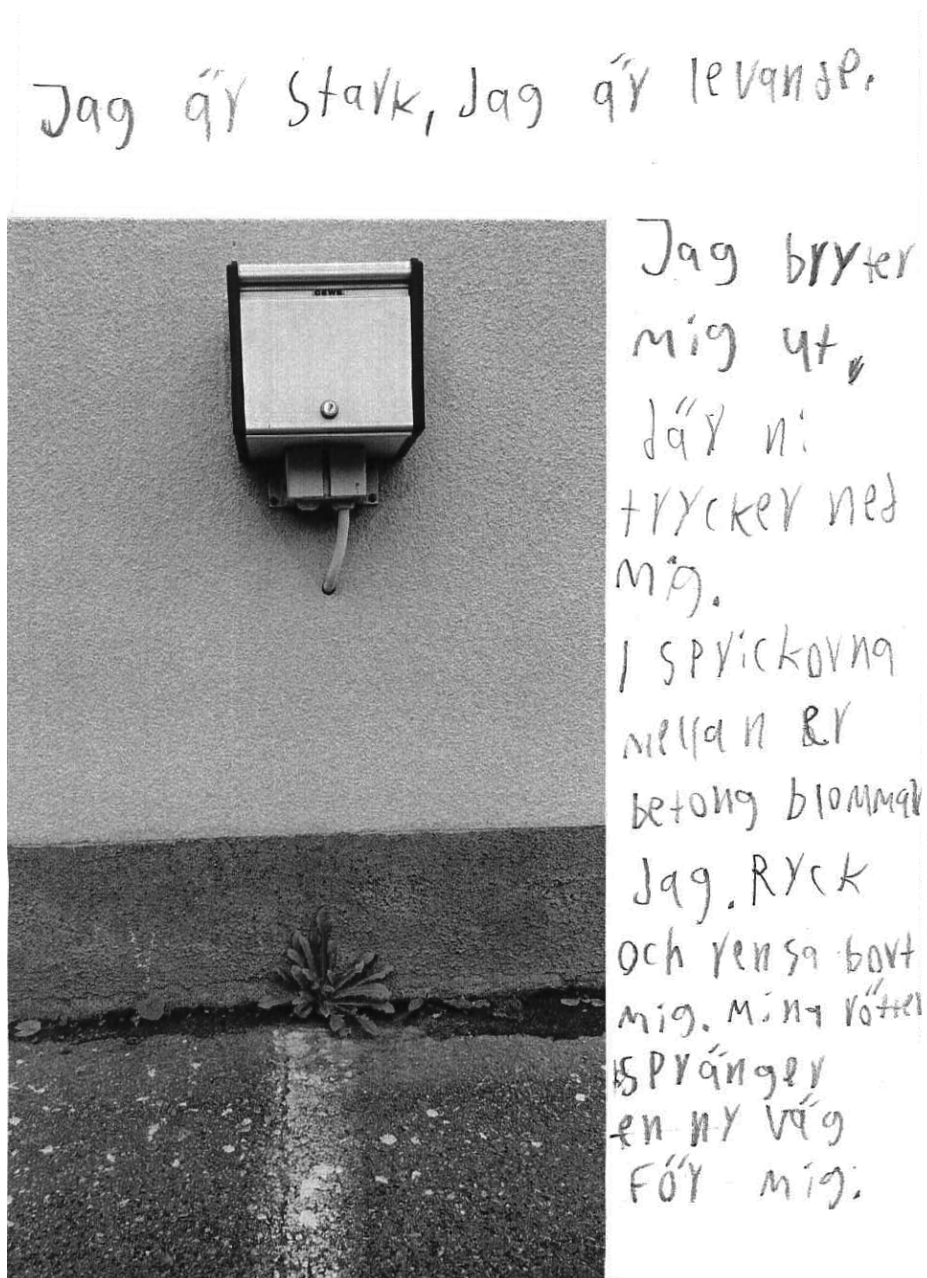 Jag är stark, Jag är levande.
GEWE
Jag bryter
mig ut,
där ni
trycker ned
mig.
I sprickorna
mellan Er
betong blommar
Jag. Ryck
och rensa bort
mig. Mina rötter
spränger
en ny väg
För mig.